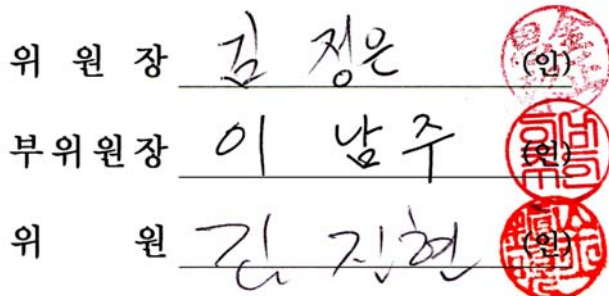 위 원 장 김 정은 (인)
부위원장 이 남 주 (인)
위 원 김 진현 (인)